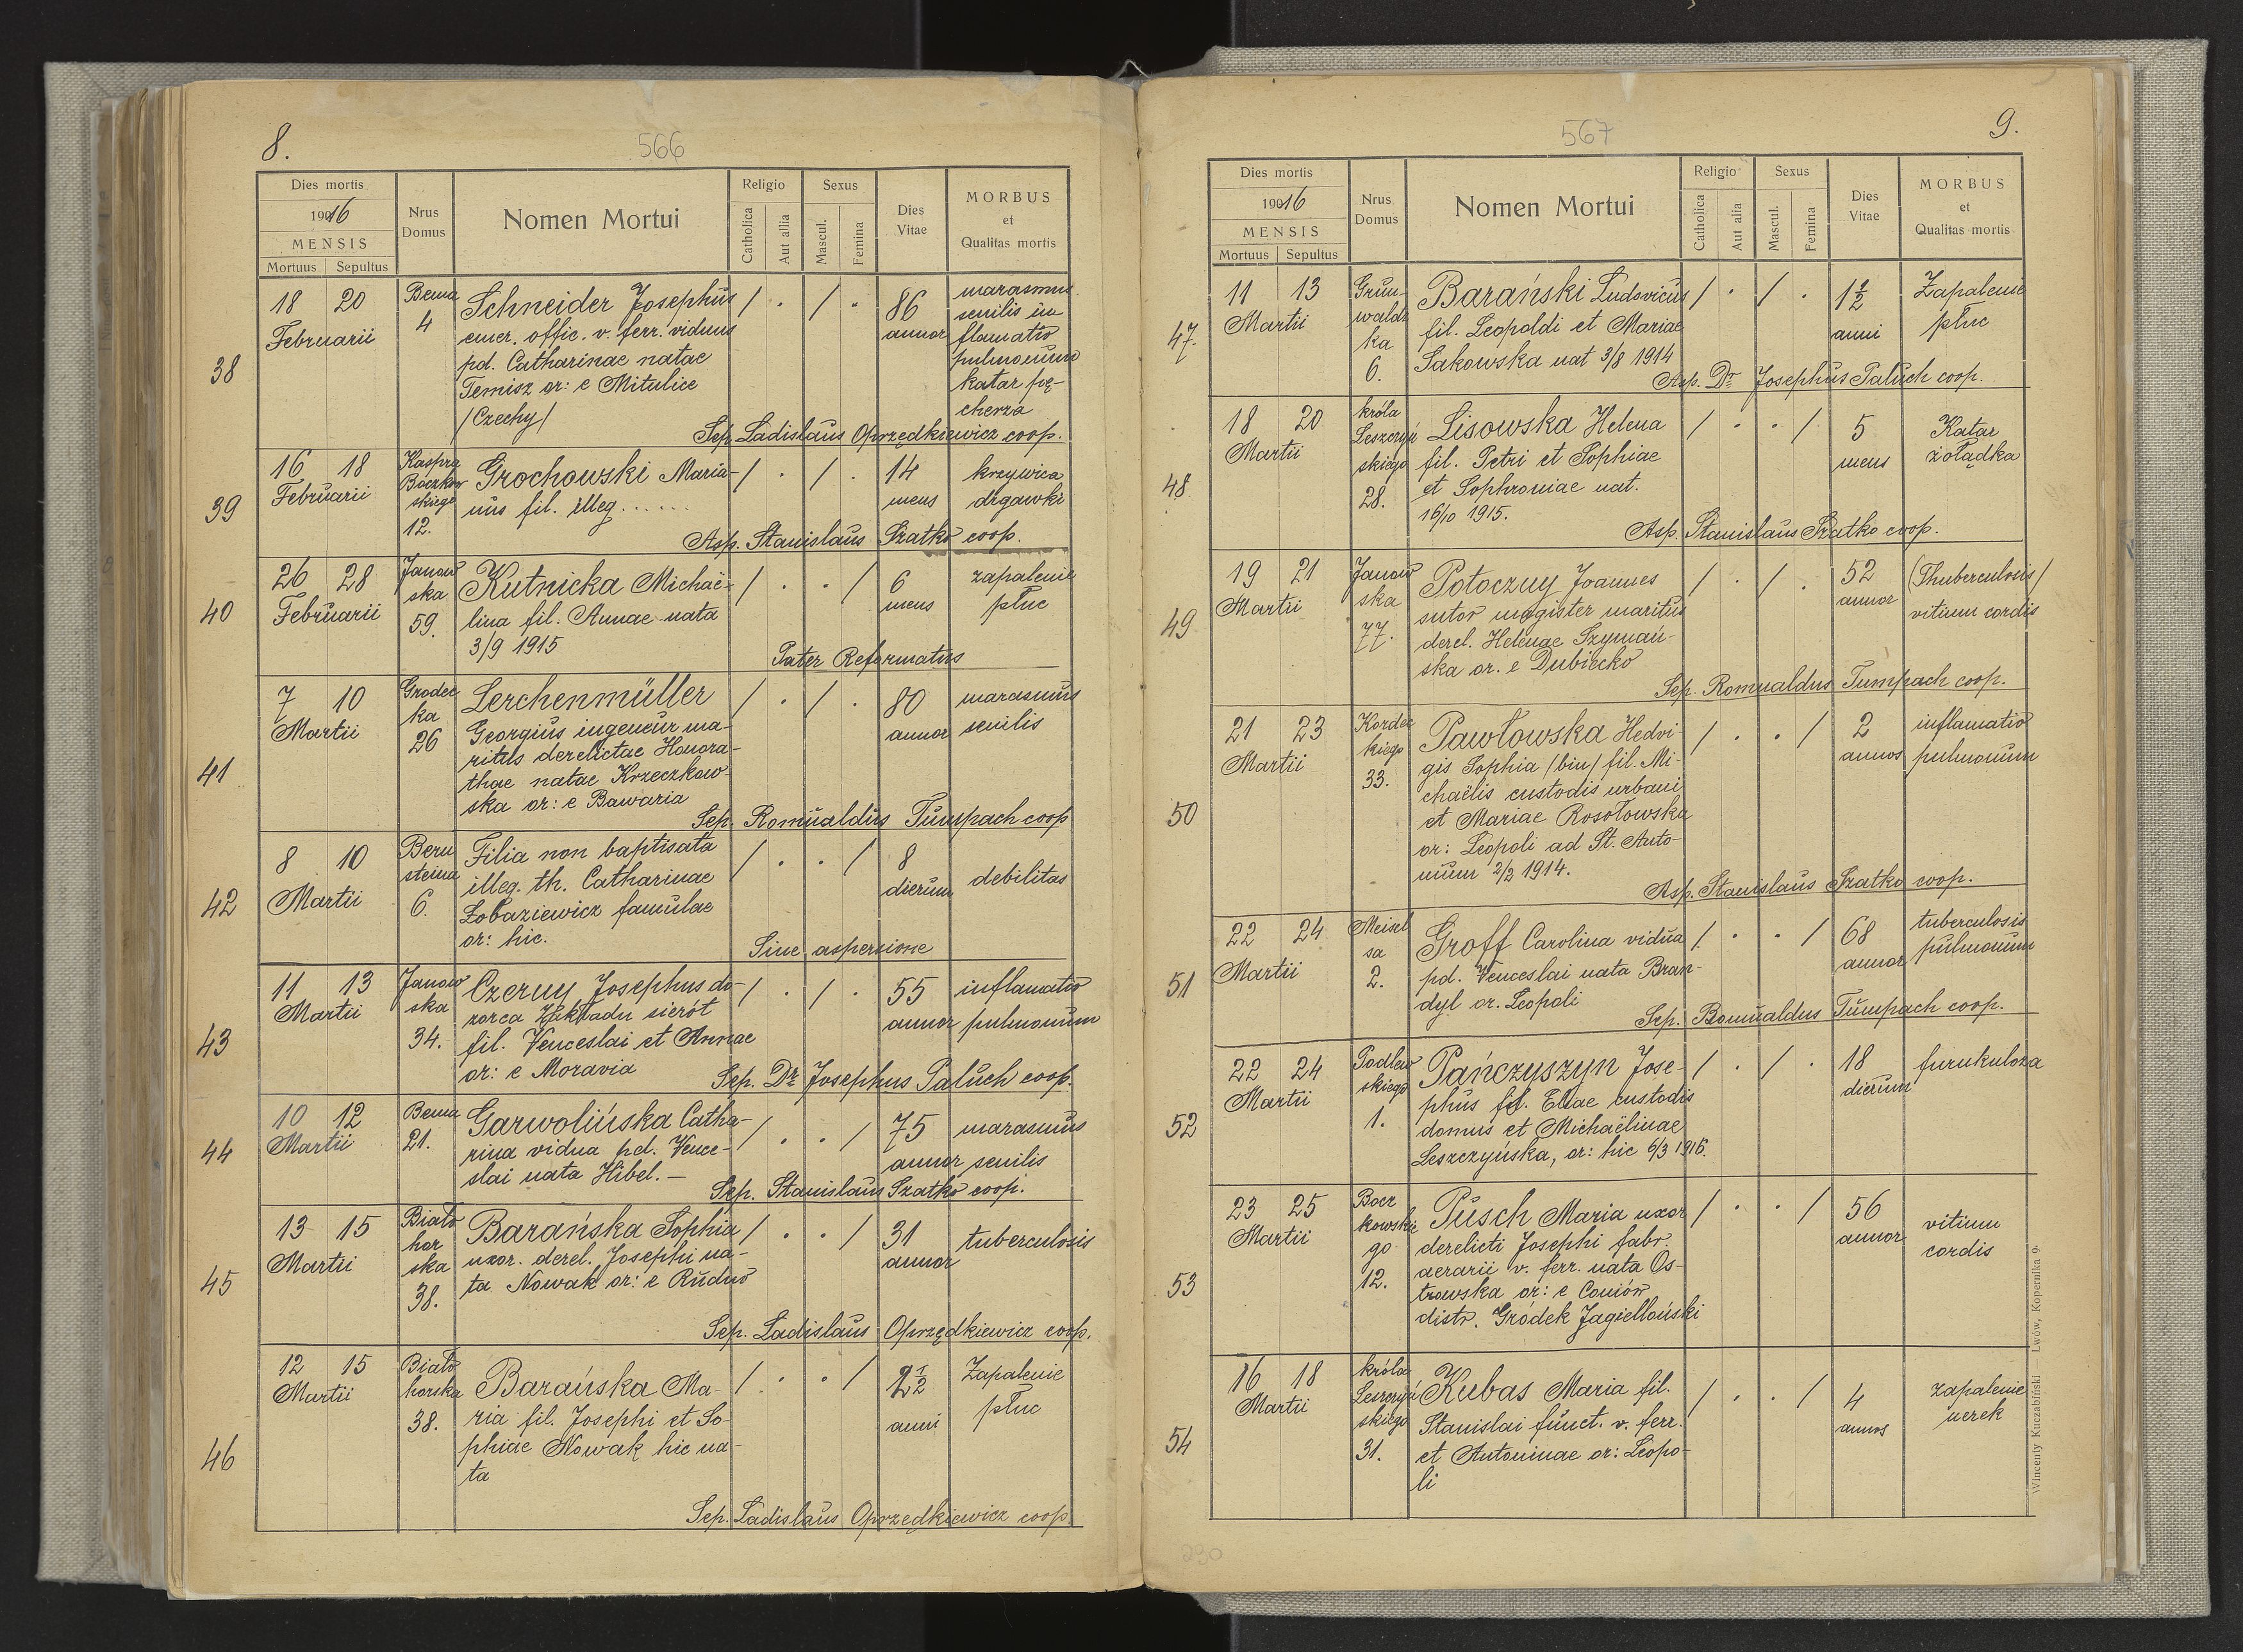 8.
566
Dies mortis
190 16
MENSIS
Mortuus Sepultus
Nrus Domus
Nomen Mortui
Religio
Catholica
Aut alia
Sexus
Mascul.
Femina
Dies Vitae
MORBUS
et
Qualitas mortis
38
18 20
Februarii
Bema
4
Schneider Josephus
emer. offic. v. ferr. viduus
pd. Catharinae natae
Temisz or: e Mitulice
/Czechy/
/ . / .
86
annor
marasmus
senilis in
flamatio
pulmonum
katar pę-
cherza
Sep. Ladislaus Oprzędkiewicz coop.
39
16 18
Februarii
Kaspra
Boczkow
skiego
12.
Grochowski Maria-
nus fil. illeg......
/ . / .
14
mens
krzywica
drgawki
Asp. Stanislaus Szatko coop.
40
26 28
Februarii
Janow
ska
59.
Kutnicka Michaë-
lina fil. Annae nata
3/9 1915
/ . . /
6
mens
zapalenie
płuc
Pater Reformatus
41
7 10
Martii
Grodec
ka
26
Lerchenmüller
Georgius ingeneur ma-
ritus derelictae Honora-
thae natae Krzeczkow-
ska or: e Bawaria
/ . / .
80
annor
marasmus
senilis
Sep. Romualdus Tumpach coop
42
8 10
Martii
Bern
steina
6.
Filia non baptisata
illeg. th. Catharinae
Łobaziewicz famulae
or: hic.
/ . . /
8
dierum
debilitas
Sine aspersione
43
11 13
Martii
Janow
ska
34.
Czerny Josephus do-
zorca Zakładu sierót
fil. Venceslai et Annae
or: e Moravia
/ . / .
55
annor
inflamatio
pulmonum
Sep. Dr Josephus Paluch coop.
44
10 12
Martii
Bema
21.
Garwolińska Catha-
rina vidua pd. Vence-
slai nata Hibel. –
/ . . /
75
annor
marasmus
senilis
Sep. Stanislaus Szatko coop.
45
13 15
Martii
Biało
hor
ska
38.
Barańska Sophia
uxor. derel. Josephi na-
ta Nowak or: e Rudno
/ . . /
31
annor
tuberculosis
Sep. Ladislaus Oprzędkiewicz coop.
46
12 15
Martii
Biało
horska
38.
Barańska Ma-
ria fil. Josephi et So-
phiae Nowak hic na-
ta
/ . . /
2 1/2
anni
Zapalenie
płuc
Sep. Ladislaus Oprzędkiewicz coop
567
9.
Dies mortis
190 16
MENSIS
Mortuus Sepultus
Nrus Domus
Nomen Mortui
Religio
Catholica
Aut alia
Sexus
Mascul.
Femina
Dies Vitae
MORBUS
et
Qualitas mortis
47.
11 13
Martii
Grun-
waldz
ka
6.
Barański Ludovicus
fil. Leopoldi et Mariae
Sakowska nat 3/8 1914
/ . / .
1 1/2
anni
Zapalenie
płuc
Asp. Dr Josephus Paluch coop.
48
18 20
Martii
króla
Leszczyń
skiego
28.
Lisowska Helena
fil. Petri et Sophiae
et Sophroniae nat.
16/10 1915.
/ . . /
5
mens
Katar
żołądka
Asp. Stanislaus Szatko coop.
49
19 21
Martii
Janow
ska
77.
Potoczny Joannes
sutor magister maritus
derel. Helenae Szymań-
ska or. e Dubiecko
/ . / .
52
annor
(Thuberculosis/
vitium cordis
Sep. Romualdus Tumpach coop.
50
21 23
Martii
Kordec
kiego
33.
Pawłowska Hedvi-
gis Sophia /bin/ fil. Mi-
chaëlis custodis urbani
et Mariae Rosołowska
or: Leopoli ad St. Anto-
nium 2/2 1914.
/ . . /
2
annos
inflamatio
pulmonum
Asp. Stanislaus Szatko coop.
51
22 24
Martii
Meisel
sa
2.
Groff Carolina vidua
pd. Venceslai nata Bran-
dyl or. Leopoli
/ . . /
68
annor
tuberculosis
pulmonum
Sep. Romualdus Tumpach coop.
52
22 24
Martii
Podlew
skiego
1.
Pańczyszyn Jose-
phus fil. Eliae custodis
domus et Michaëlinae
Leszczyńska, or: hic 6/3 1916.
/ . / .
18
dierum
furukuloza
53
23 25
Martii
Bocz
kowskie
go
12.
Pusch Maria uxor
derelicti Josephi fabr.
aerarii v. ferr. nata Os-
trowska or: e Coniów
distr. Gródek Jagielloński
/ . . /
56
annor
vitium
cordis
54
16 18
Martii
króla
Leszczyń
skiego
31.
Kubas Maria fil.
Stanislai funct. v. ferr.
et Antoninae or: Leopo-
li
/ . . /
4
annos
zapalenie
nerek
Wincenty Kuczabiński — Lwów, Kopernika 9.
290